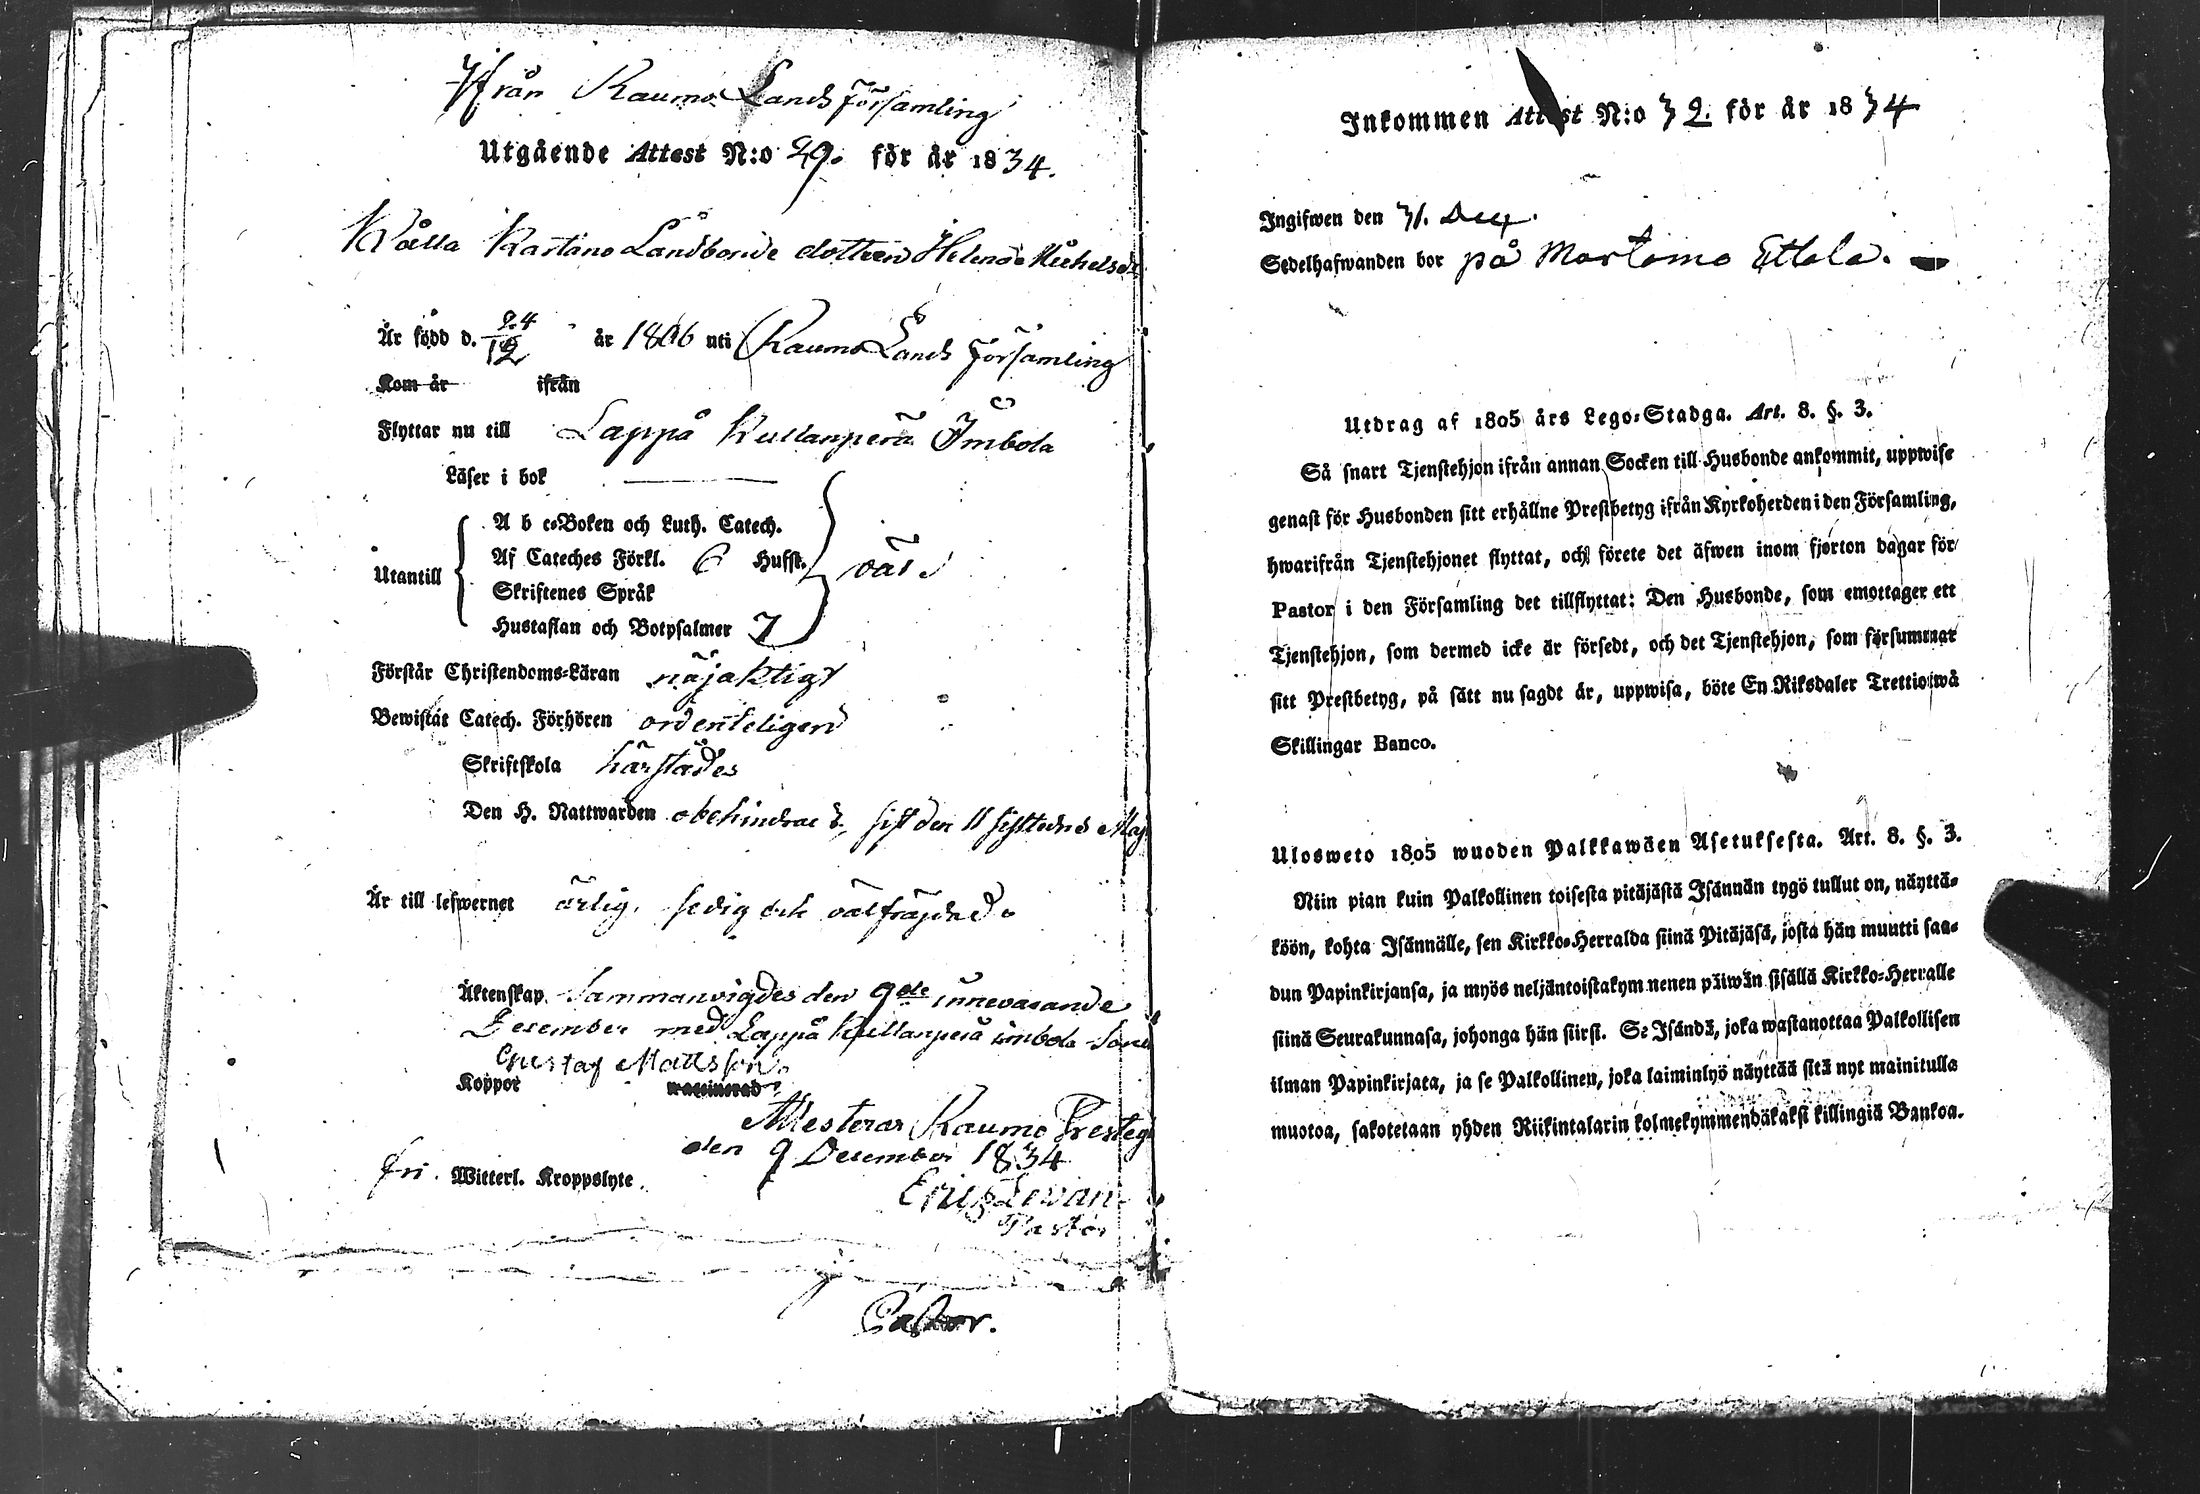 Ifrån Raumo Lands församling
Utgående Attest N:o 29. för år 1834.
Wälla Kartano Landbonde dottern Helena Michelsdr
Är född d. 24/12 år 1806 uti Raumo Lands församling
Kom år ifrån
Flyttar nu till Lappå Kullanperä Imbola
Läser i bok
Utantill
A b c-Boken och Luth. Catech.
Af Cateches Förkl. 6 Hufst.
Skriftenes Språk
Hustaflan och Botpsalmer 7
väl
Förstår Christendoms-Läran näjaktigt
Bewistat Catech. Förhören ordenteligen
Skriftskola härstädes
Den H. Nattwarden obehindrad, sist den 11 sistledne Maj
Är till lefwernet ärlig, sedig och välfräjdad.
Äktenskap. Sammanvigdes den 9de innevarande
December med Lappå Kullanperä imbola Sone
Gustaf Mattsson.
Koppor vaccinerad
Attesterar Raumo Presteg
den 9 December 1834
fri. Witterl. Kroppslyte.
Eric Lewan
Pastor
Pastor.
Inkommen Attest N:o 32. för år 1834
Ingifwen den 31. Dec.
Sedelhafwanden bor på Martamo Ettala.
Utdrag af 1805 års Lego-Stadga. Art. 8. §. 3.
Så snart Tjenstehjon ifrån annan Socken till Husbonde ankommit, uppwise
genast för Husbonden sitt erhållne Prestbetyg ifrån Kyrkoherden i den Församling,
hwarifrån Tjenstehjonet flyttat, och förete det äfwen inom fjorton dagar för
Pastor i den Församling det tillflyttat: Den Husbonde, som emottager ett
Tjenstehjon, som dermed icke är försedt, och det Tjenstehjon, som försummar
sitt Prestbetyg, på sätt nu sagdt är, uppwisa, böte En Riksdaler Trettiotwå
Skillingar Banco.
Ulosweto 1805 wuoden Palkkawäen Asetuksesta. Art. 8. §. 3.
Niin pian kuin Palkollinen toisesta pitäjästä Isännän tygö tullut on, näyttä-
köön, kohta Isännälle, sen Kirkko-Herralda siinä Pitäjäsä, josta hän muutti saa-
dun Papinkirjansa, ja myös neljäntoistakymmenen päiwän sisällä Kirkko-Herralle
siinä Seurakunnasa, johonga hän siirsi. Se Isändä, joka wastanottaa Palkollisen
ilman Papinkirjata, ja se Palkollinen, joka laiminlyö näyttää sitä nyt mainitulla
muotoa, sakotetaan yhden Riikintalarin kolmekymmendäkaksi killingiä Bankoa.